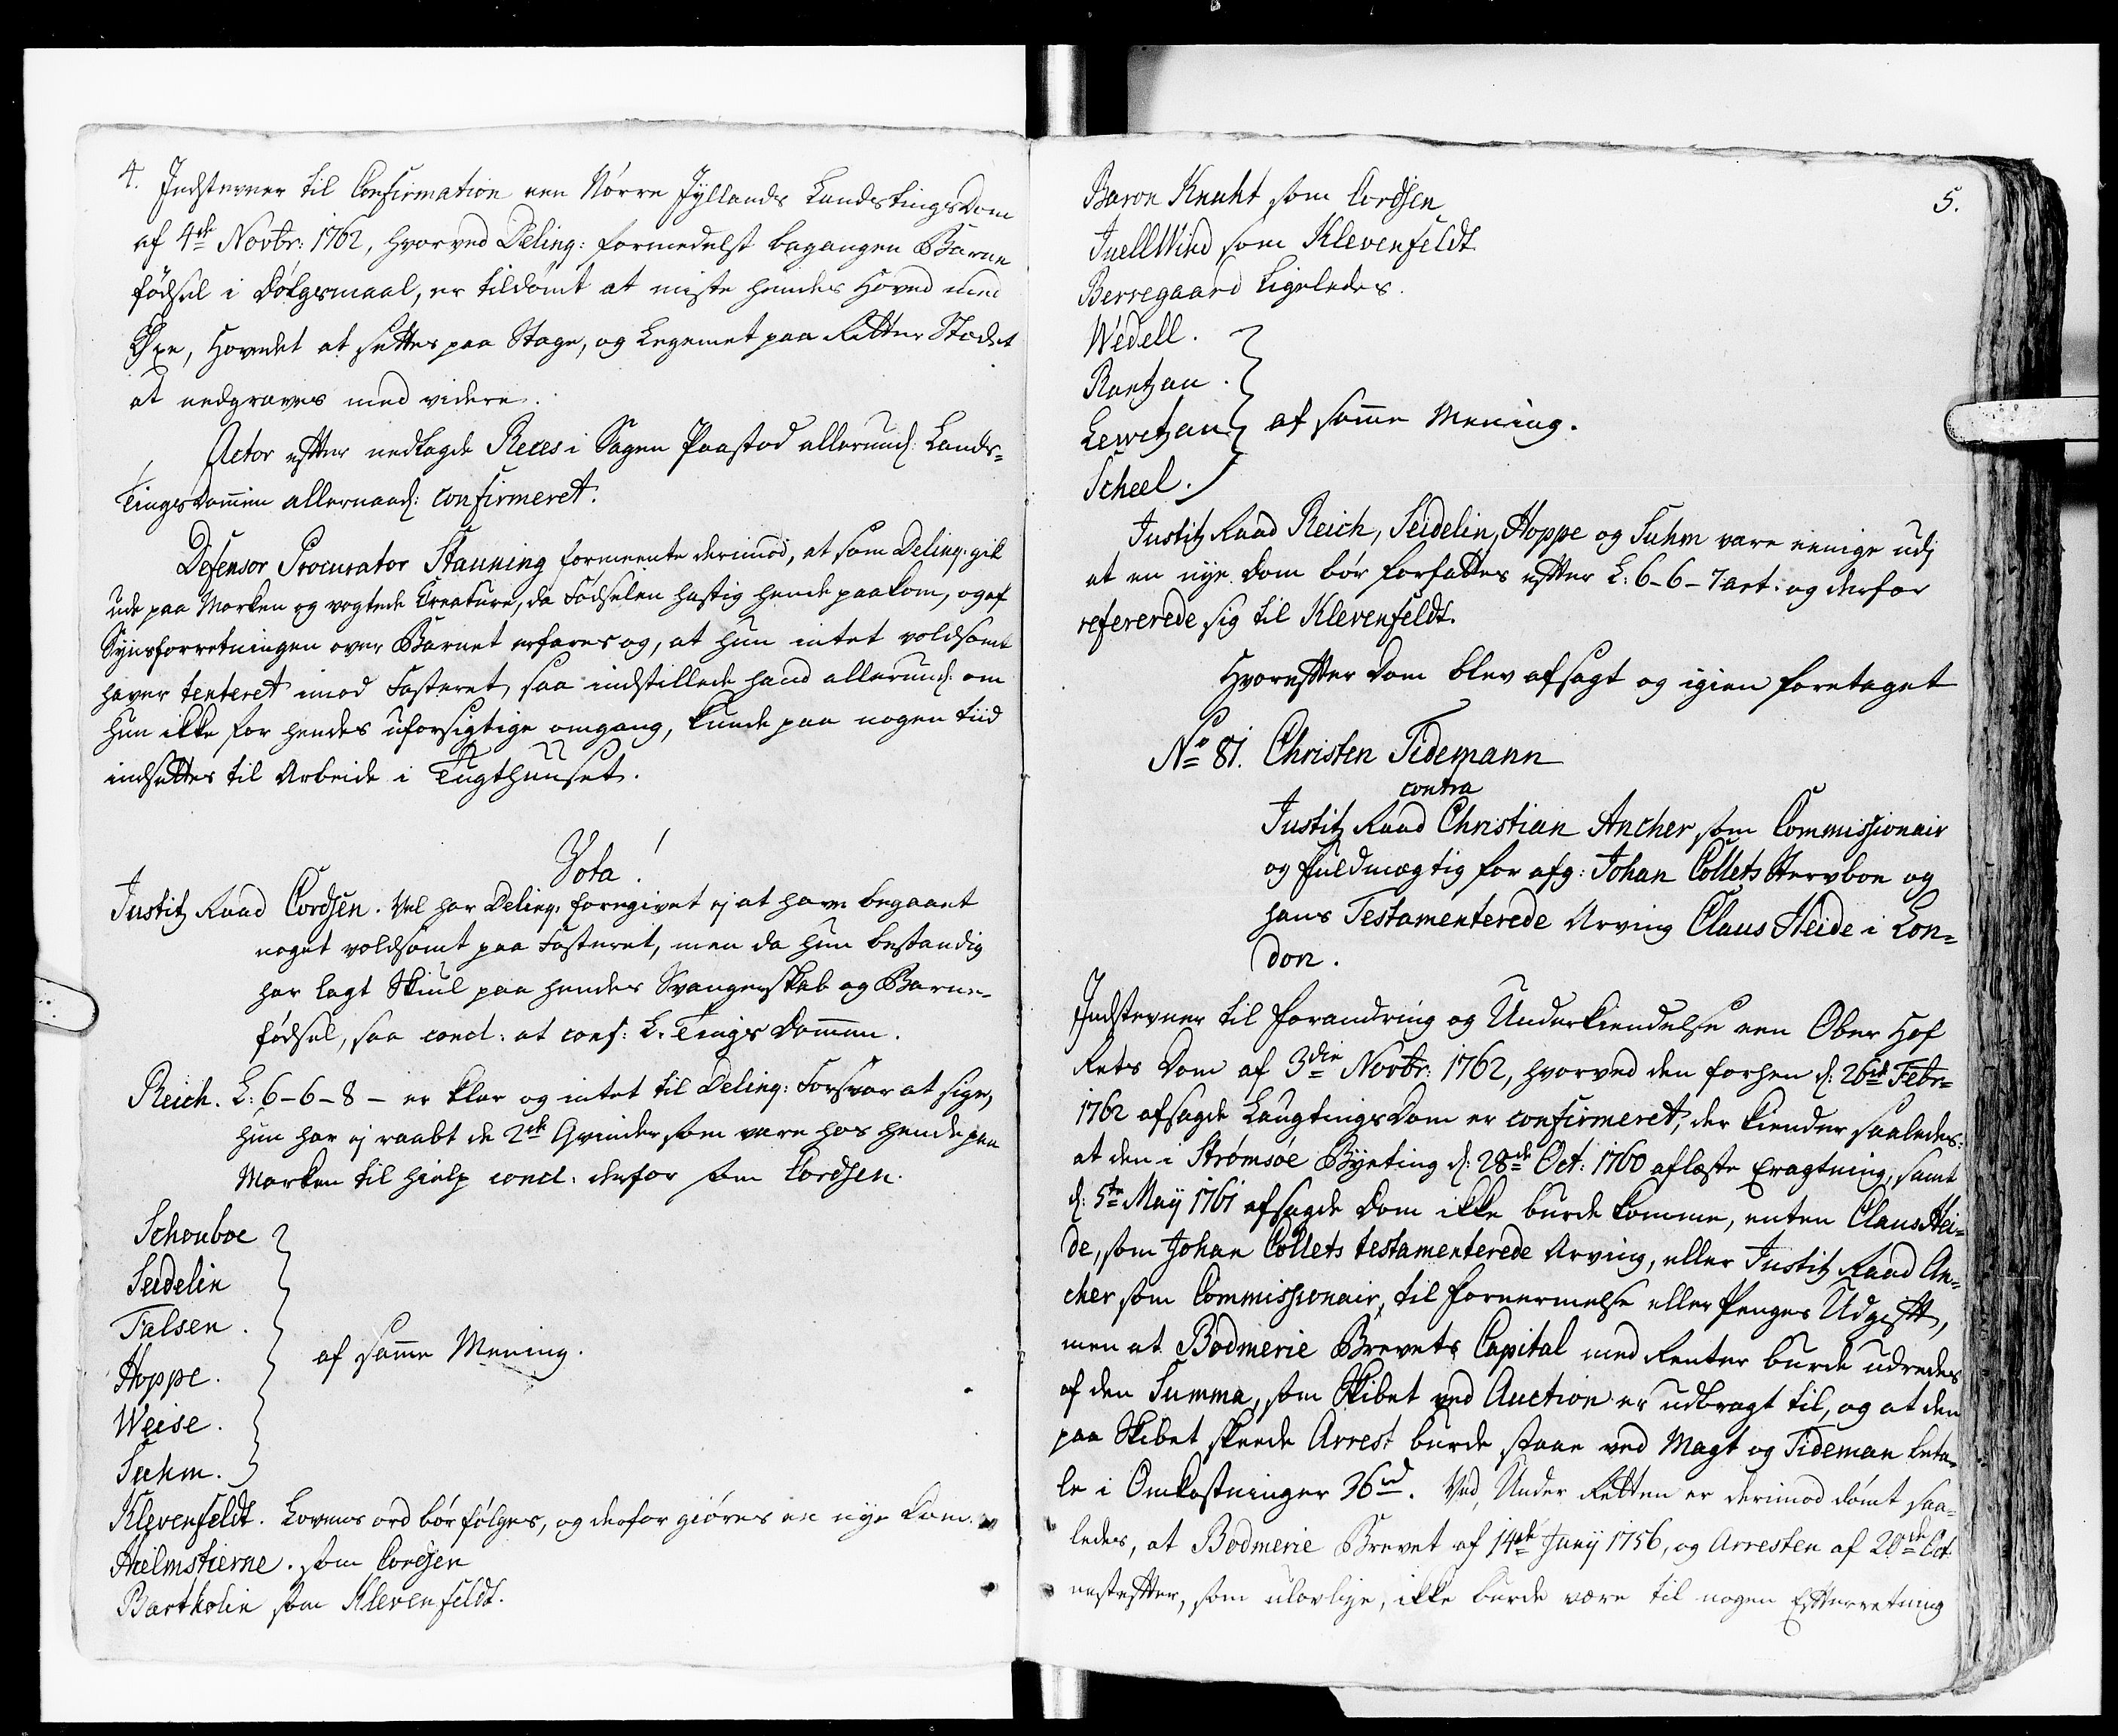 4. Indstevner til Confirmation een Nörre Jyllands Landstings Dom
af 4de Novbr: 1762, hvorved Delinq: formedelst begangen Barne
födsel i Dølgsmaal, er tildömt at miste hendes Hoved med
Øxe, Hovedet at settes paa Stage, og Legemet paa Retter Stedet
at nedgraves med videre.
Actor efter nedlagde Reces i Sagen Paastod allerund: Lands-
Tings Dommen allernaad: confirmeret.
Defensor Procurator Stauning formeente derimod, at som Delinq: gik
ude paa Marken og vogtede Creature, da Födselen hastig hende paakom, og af
Synsforretningen over Barnet erfares og, at hun intet voldsomt
haver tenteret imod Fosteret, saa indstillede hand allerund: om
hun ikke for hendes uforsigtige omgang, kunde paa nogen tiid
indsettes til Arbeide i Tugthuuset.
Vota!
Justitz Raad Cordsen. Vel har Delinq: foregivet ej at have begaaet
noget voldsomt paa Fosteret, men da hun bestandig
har lagt Skiul paa hendes Svangerskab og Barne-
födsel, saa concl: at conf: L. Tings Dommen.
Reich. L: 6-6-8 - er klar og intet til Delinq: Forsvar at sige,
hun har ej raabt de 2de Qvinder som vare hos hende paa
Marken til hielp concl: derfor som Cordsen.
Schouboe
Seidelin
Falsen.
Hoppe. af samme Mening.
Weise.
Suhm.
Klevenfeldt. Lovens ord bör fölges, og derfor giöres en nye Dom.
Hielmstierne. som Cordsen
Bartholin som Klevenfeldt.
5.
Baron Knuht som Cordsen
Juell Wind som Klevenfeldt
Berregaard ligeledes.
Wedell.
Rantzau.
Lewetzau af samme Mening.
Scheel.
Justitz Raad Reich, Seidelin, Hoppe og Suhm vare eenige udj
at en nye Dom bör forfattes efter L: 6-6-7 art: og derfor
refererede sig til Klevenfeldt.
Hvorefter Dom blev afsagt og igien foretaget
No 81. Christen Tidemann
contra
Justitz Raad Christian Ancher som Commissionair
og Fuldmægtig for afg: Johan Collets Stervboe og
hans Testamenterede Arving Claus Heide i Lon-
don.
Indstevner til Forandring og Underkiendelse een Ober Hof
Rets Dom af 3die Novbr: 1762, hvorved den forhen d: 26de Febr-
1762 afsagde Laugtings Dom er confirmeret, der kiender saaledes:
at den i Strømsøe Byeting d: 28de Oct: 1760 aflæste Eragtning, samt
d: 5te Maij 1761 afsagde Dom ikke burde komme, enten Claus Hei-
de, som Johan Collets testamenterede Arving, eller Justitz Raad An-
cher som Commissionair, til Fornermelse eller Penges Udgift,
men at Bodmerie Brevets Capital med Renter burde udredes
af den Summa, som Skibet ved Auction er udbragt til, og at den
paa Skibet skeede Arrest burde staae ved Magt og Tideman beta-
le i Omkostninger 36 rd. Ved Under Retten er derimod dömt saa-
ledes, at Bodmerie Brevet af 14de Junij 1756, og Arresten af 20de Oct:
nestefter, som ulovlige, ikke burde være til nogen Efterretning